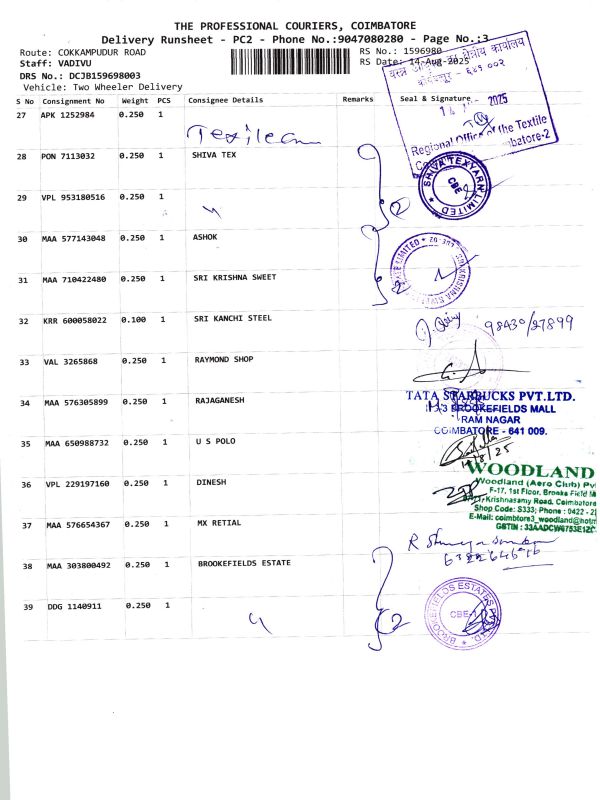 THE PROFESSIONAL COURIERS, COIMBATORE
Delivery Runsheet - PC2 - Phone No.:9047080280 - Page No.:3
Route: COKKAMPUDUR ROAD
RS No.: 1596980
Staff: VADIVU
RS Date: 14-Aug-2025
DRS No.: DCJB159698003
Vehicle: Two Wheeler Delivery
S No Consignment No Weight PCS Consignee Details Remarks Seal & Signature
क्षेत्रीय कार्यालय
६४१ ००२
2025
Regional Office of the Textile
27 APK 1252984 0.250 1
28 PON 7113032 0.250 1 SHIVA TEX
SHIVA TEXYARN LIMITED
CBE
29 VPL 953180516 0.250 1
2
30 MAA 577143048 0.250 1 ASHOK
31 MAA 710422480 0.250 1 SRI KRISHNA SWEET
32 KRR 600058022 0.100 1 SRI KANCHI STEEL
98430/27899
33 VAL 3265868 0.250 1 RAYMOND SHOP
34 MAA 576305899 0.250 1 RAJAGANESH
TATA STARBUCKS PVT.LTD.
BROOKEFIELDS MALL
RAM NAGAR
COIMBATORE - 641 009.
35 MAA 650988732 0.250 1 U S POLO
14/8/25
36 VPL 229197160 0.250 1 DINESH
WOODLAND
Woodland (Aero Club) Pv
F-17, 1st Floor, Brooke Field M
Krishnasamy Road, Coimbatore
Shop Code: S333; Phone : 0422 - 2
E-Mail: coimbtore3_woodland@hotm
GSTIN : 33AADCW6753E1ZC
37 MAA 576654367 0.250 1 MX RETIAL
38 MAA 303800492 0.250 1 BROOKEFIELDS ESTATE
39 DDG 1140911 0.250 1
2
BROOKEFIELDS ESTATES
CBE-1